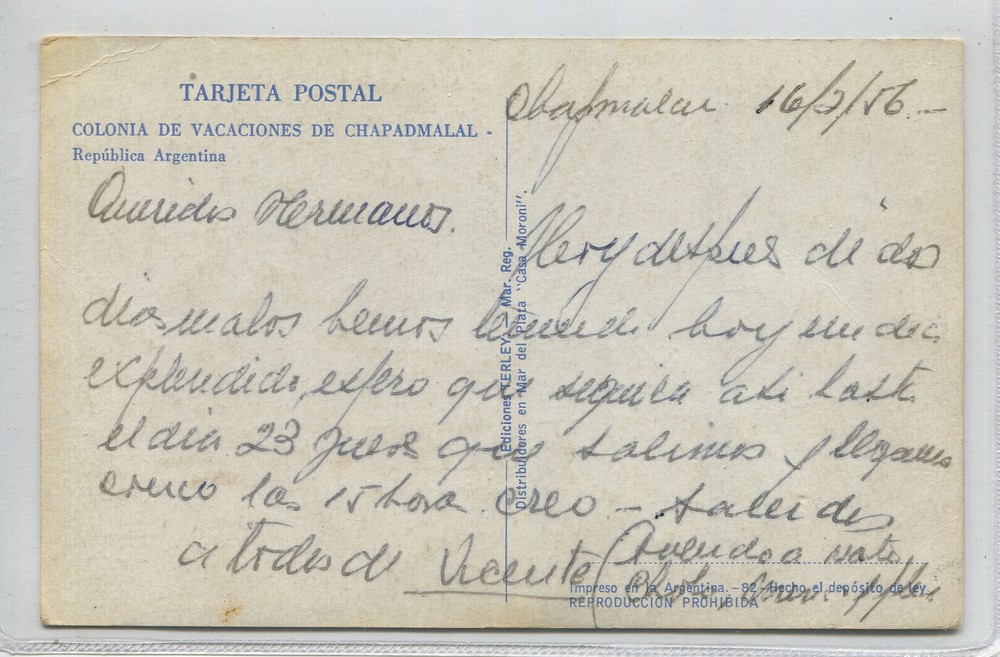 TARJETA POSTAL
COLONIA DE VACACIONES DE CHAPADMALAL -
República Argentina
16/2/56.-
Queridos Hermanos.
despues de dos
dias malos hemos tenido hoy un dia
explendido, espero que seguira asi hasta
el dia 23 jueves que salimos y llegamos
como las 15 horas creo - saludos
a todos de Vicente
Ediciones TERLEY - Mar. Reg.
Distribuidores en Mar del Plata "Casa Moroni".
Impreso en la Argentina. - 82 - Hecho el depósito de ley
REPRODUCCION PROHIBIDA